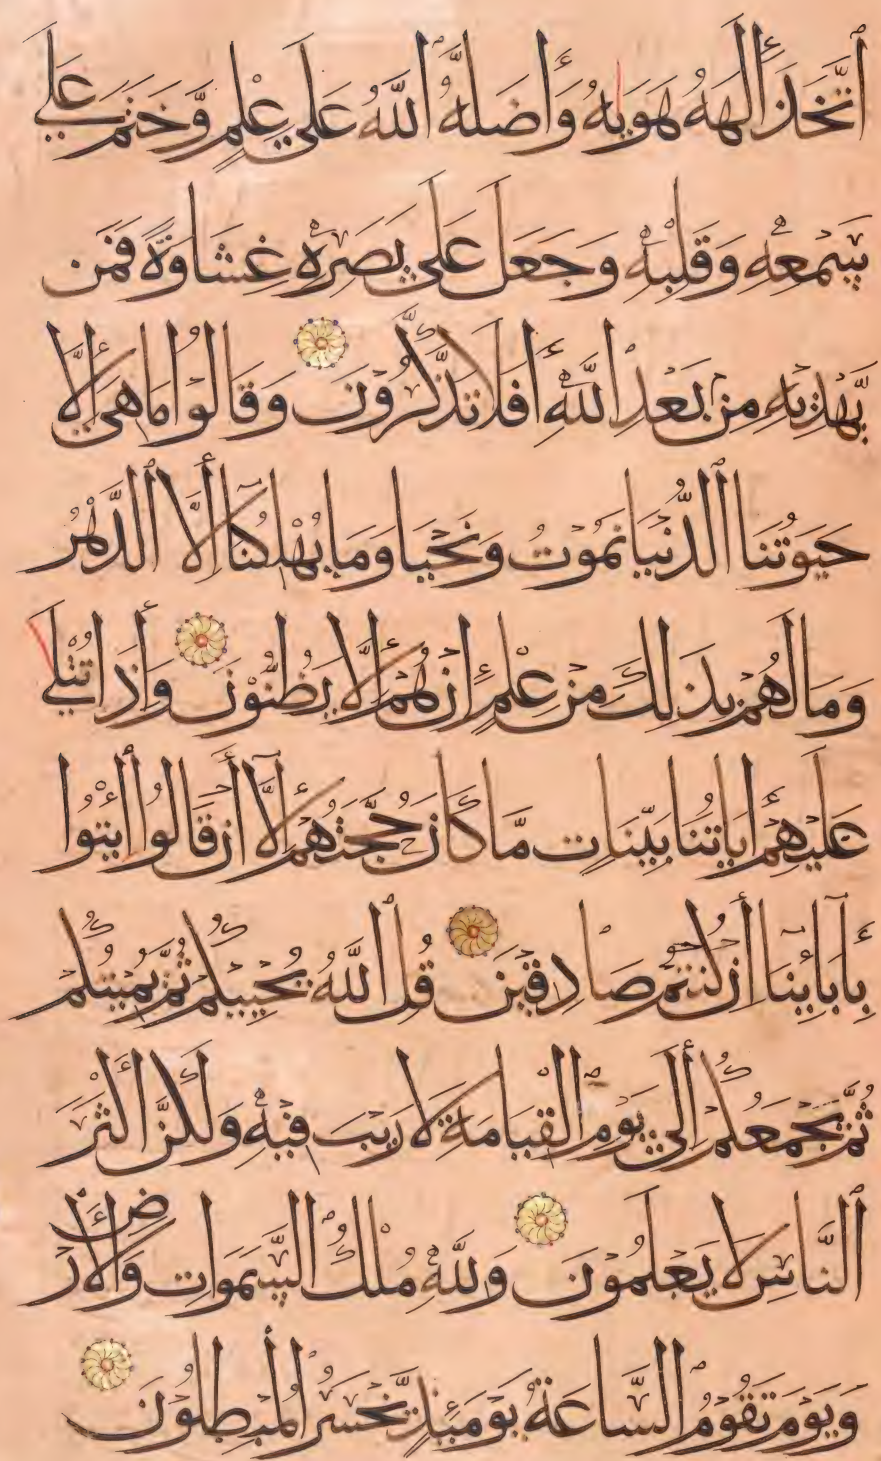 ٱتَّخَذَ إِلَهَهُ هَوَيهُ وَأَضَلَّهُ ٱللَّهُ عَلَى عِلْمٍ وَّخَتَمَ عَلَى
سَمْعِهِ وَقَلْبِهِ وَجَعَلَ عَلَى بَصَرِهِ غِشَاوَةً فَمَن
يَّهْدِيهِ مِنۢ بَعْدِ اللَّهِ أَفَلَا تَذَكَّرُونَ وَقَالُوا مَا هِىَ إِلَّا
حَيَوتُنَا ٱلدُّنْيَا نَمُوتُ وَنَحْيَا وَمَا يُهْلِكُنَا إِلَّا ٱلدَّهْرُ
وَمَا لَهُمْ بِذَلِكَ مِنْ عِلْمٍ إِنْ هُمْ إِلَّا يَظُنُّونَ وَإِذَا تُتْلَى
عَلَيْهِمْ أيَاتُنَا بَيِّنَاتٍ مَّا كَانَ حُجَّتَهُمْ إِلَّا أَنْ قَالُوا ائْتُوا
بِأبَائِنَا إِنْ كُنْتُمْ صَادِقِينَ قُلِ ٱللَّهُ يُحْيِيكُمْ ثُمَّ يُمِيتُكُمْ
ثُمَّ يَجْمَعُكُمْ إِلَى يَوْمِ ٱلْقِيَامَةِ لَا رَيْبَ فِيهِ وَلَكِنَّ أَكْثَرَ
ٱلنَّاسِ لَا يَعْلَمُونَ وَلِلَّهِ مُلْكُ ٱلسَّمَوَاتِ وَٱلْأَرْضِ
وَيَوْمَ تَقُومُ ٱلسَّاعَةُ يَوْمَئِذٍ يَّخْسَرُ ٱلْمُبْطِلُونَ